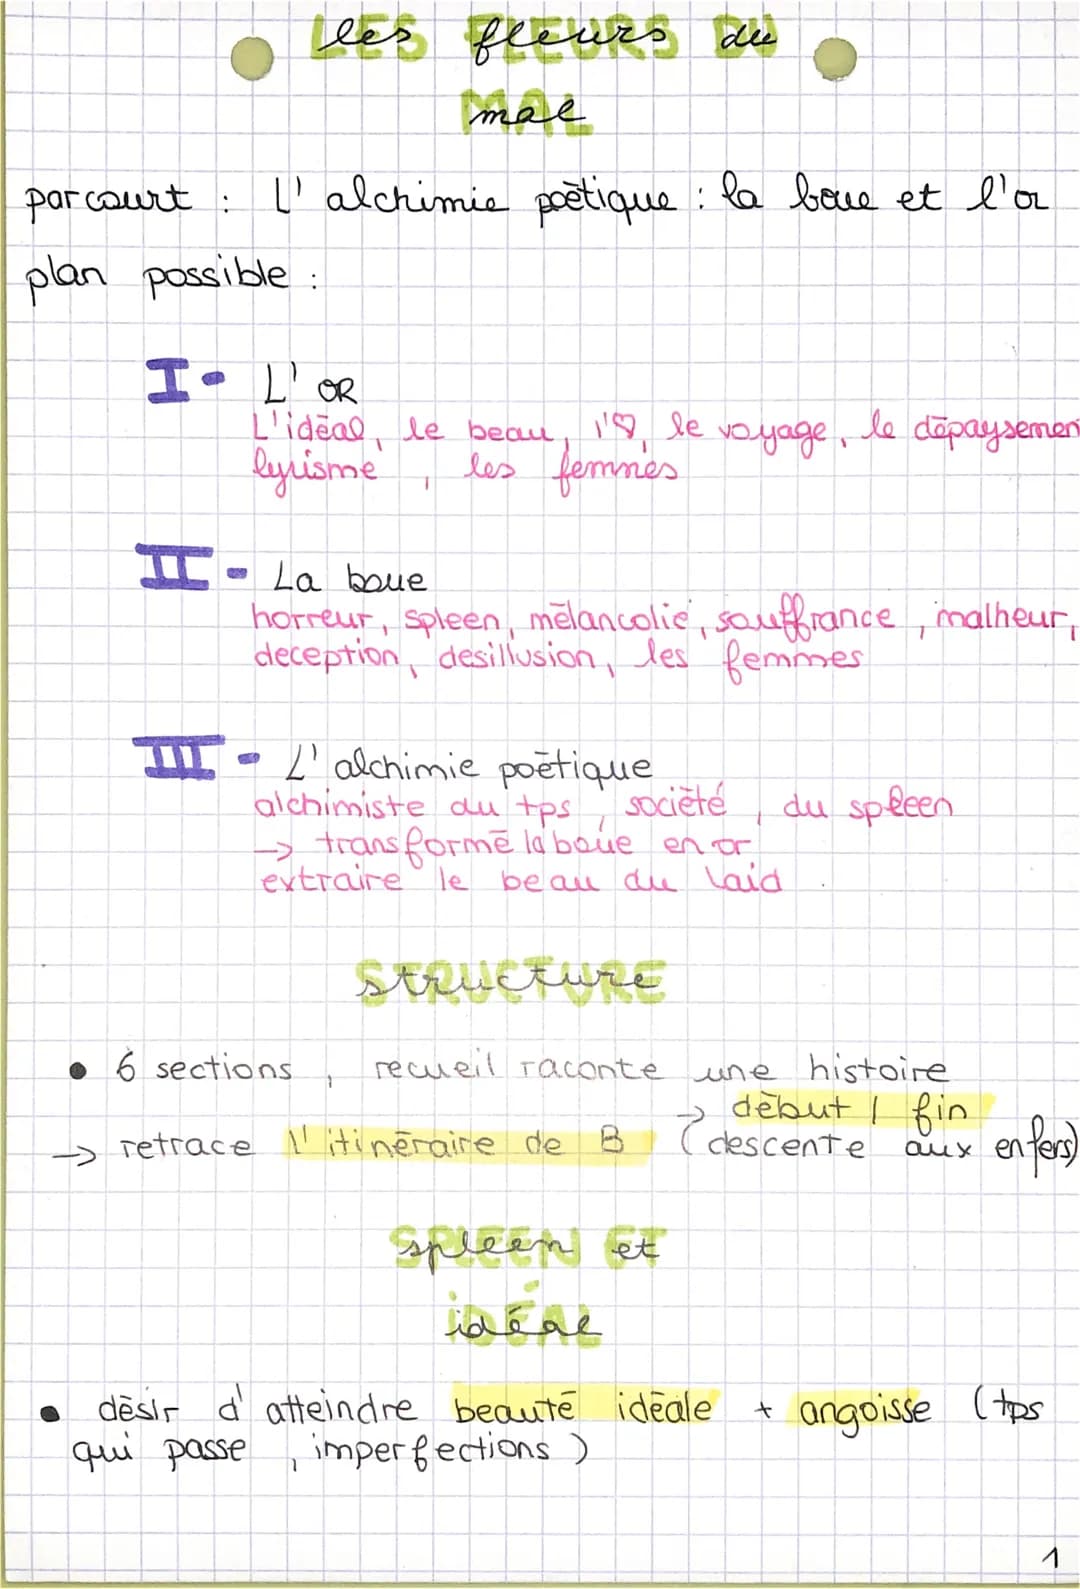 les fleurs du
mal
parcourt : L'alchimie poétique : la boue et l'or
plan possible :
I- L'OR
L'idéal, le beau, l'♡, le voyage, le dépaysemen
lyrisme, les femmes
II- La boue
horreur, spleen, mélancolie, souffrance, malheur,
deception, desillusion, les femmes
III- L'alchimie poétique
alchimiste du tps, société, du spleen
→ transformé la boue en or
extraire le beau du laid
STRUCTURE
• 6 sections, recueil raconte une histoire
→ début / fin
→ retrace l'itinéraire de B (descente aux enfers)
spleen et
idéal
• désir d'atteindre beauté idéale + angoisse (tps
qui passe, imperfections)
1